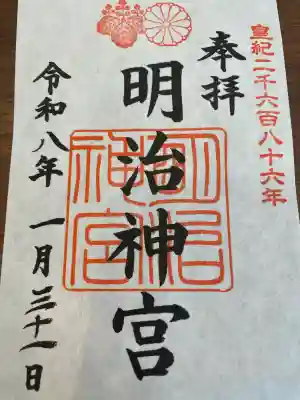 皇紀二千六百八十六年
奉拝
明治神宮
明治
神宮
令和八年 一月三十一日